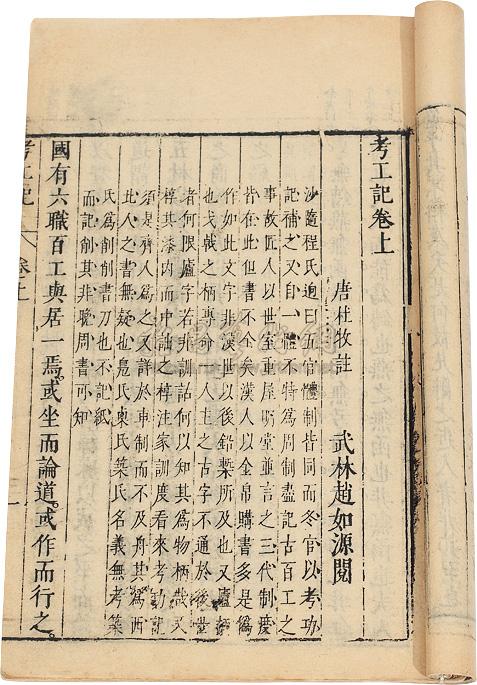 考工記卷上
唐杜牧註 武林趙如源閱
沙隨程氏迥曰五官體制皆同而冬官以考功
記補之又印一體不特爲周制盡記古百工之
事故匠人以世室重屋明堂並言之三代制度
皆在此但書不全矣漢人以金帛購書多是爲
作如此文字非漢世以後鉛槧所及也又廬柄
也戈戟之柄專命一人主之古字不通於後世
者何限廬字若非訓詁何以知其爲物柄哉又
梓其漆内而中詘之梓注家訓度看來考功記
須是齊人爲之又詳於車制而不及舟其爲西
北人之書無疑也鳬氏㮚氏築氏名義無考築
氏爲削削書刀也不記紙
而記削其非晚周書可知
國有六職百工與居一焉。或坐而論道。或作而行之。
考工記 卷上 一